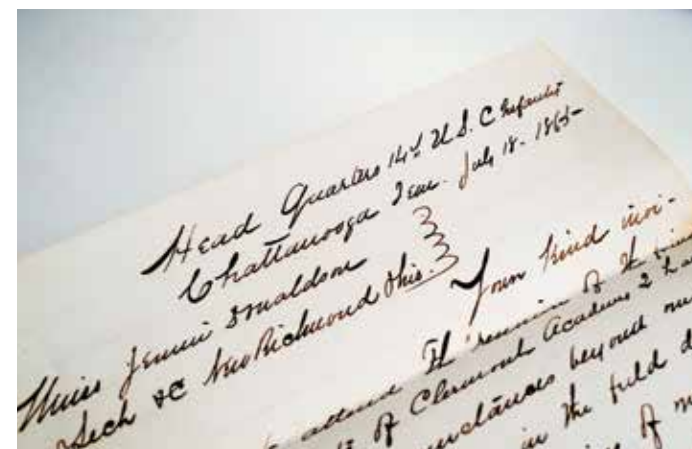 Head Quarters 14th U.S.C Infantry
Chattanooga Tenn. July 18- 1865-
Miss Jennie Donaldson
Sech &c New Richmond Ohio.
Your kind invi-
attend the reunion of the
of Clermont Academy I h
circumstances beyond
in the field d
of m